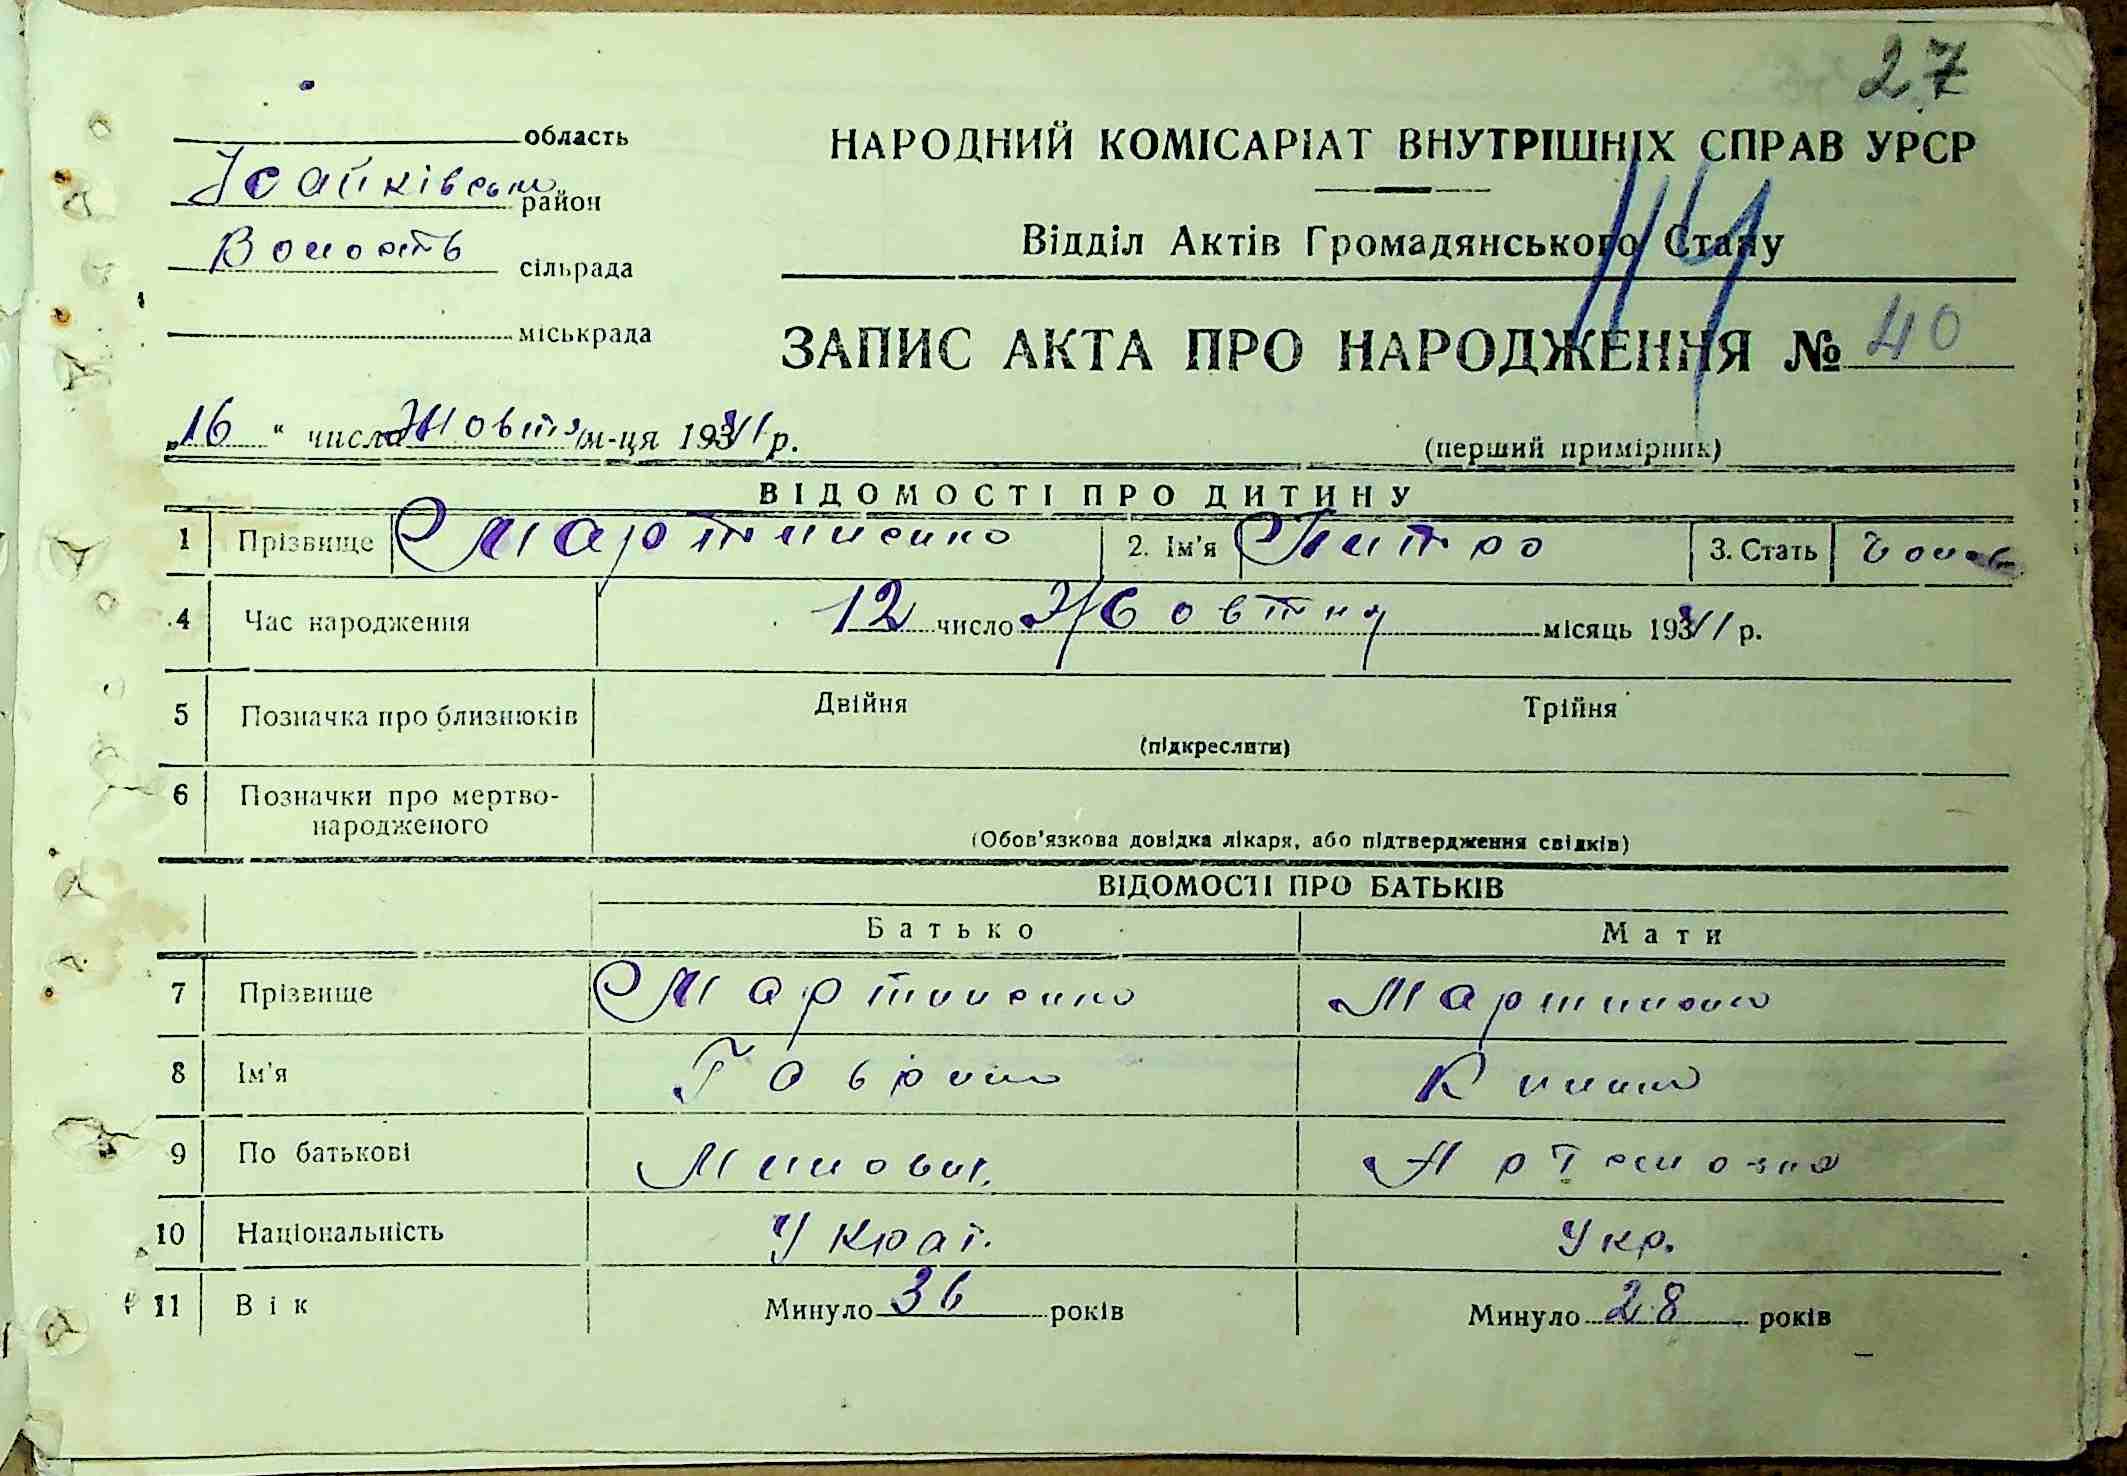 27
область
НАРОДНИЙ КОМІСАРІАТ ВНУТРІШНІХ СПРАВ УРСР
Ісайківськи район
Відділ Актів Громадянського Стану
сільрада
міськрада
ЗАПИС АКТА ПРО НАРОДЖЕННЯ № 40
„16“ числа Жовтня м-ця 1941 р.
(перший примірник)
ВІДОМОСТІ ПРО ДИТИНУ
1 Прізвище Мартиненко 2. Ім'я Питро 3. Стать чолов
4 Час народження 12 число Жовтня місяць 1941 р.
5 Позначка про близнюків Двійня Трійня
(підкреслити)
6 Позначки про мертво-
народженого
(Обов'язкова довідка лікаря, або підтвердження свідків)
ВІДОМОСТІ ПРО БАТЬКІВ
Батько Мати
7 Прізвище Мартиненко Мартиненко
8 Ім'я Гаврило
9 По батькові Артемовна
10 Національність Украї. Укр.
11 Вік Минуло 36 років Минуло 28 років